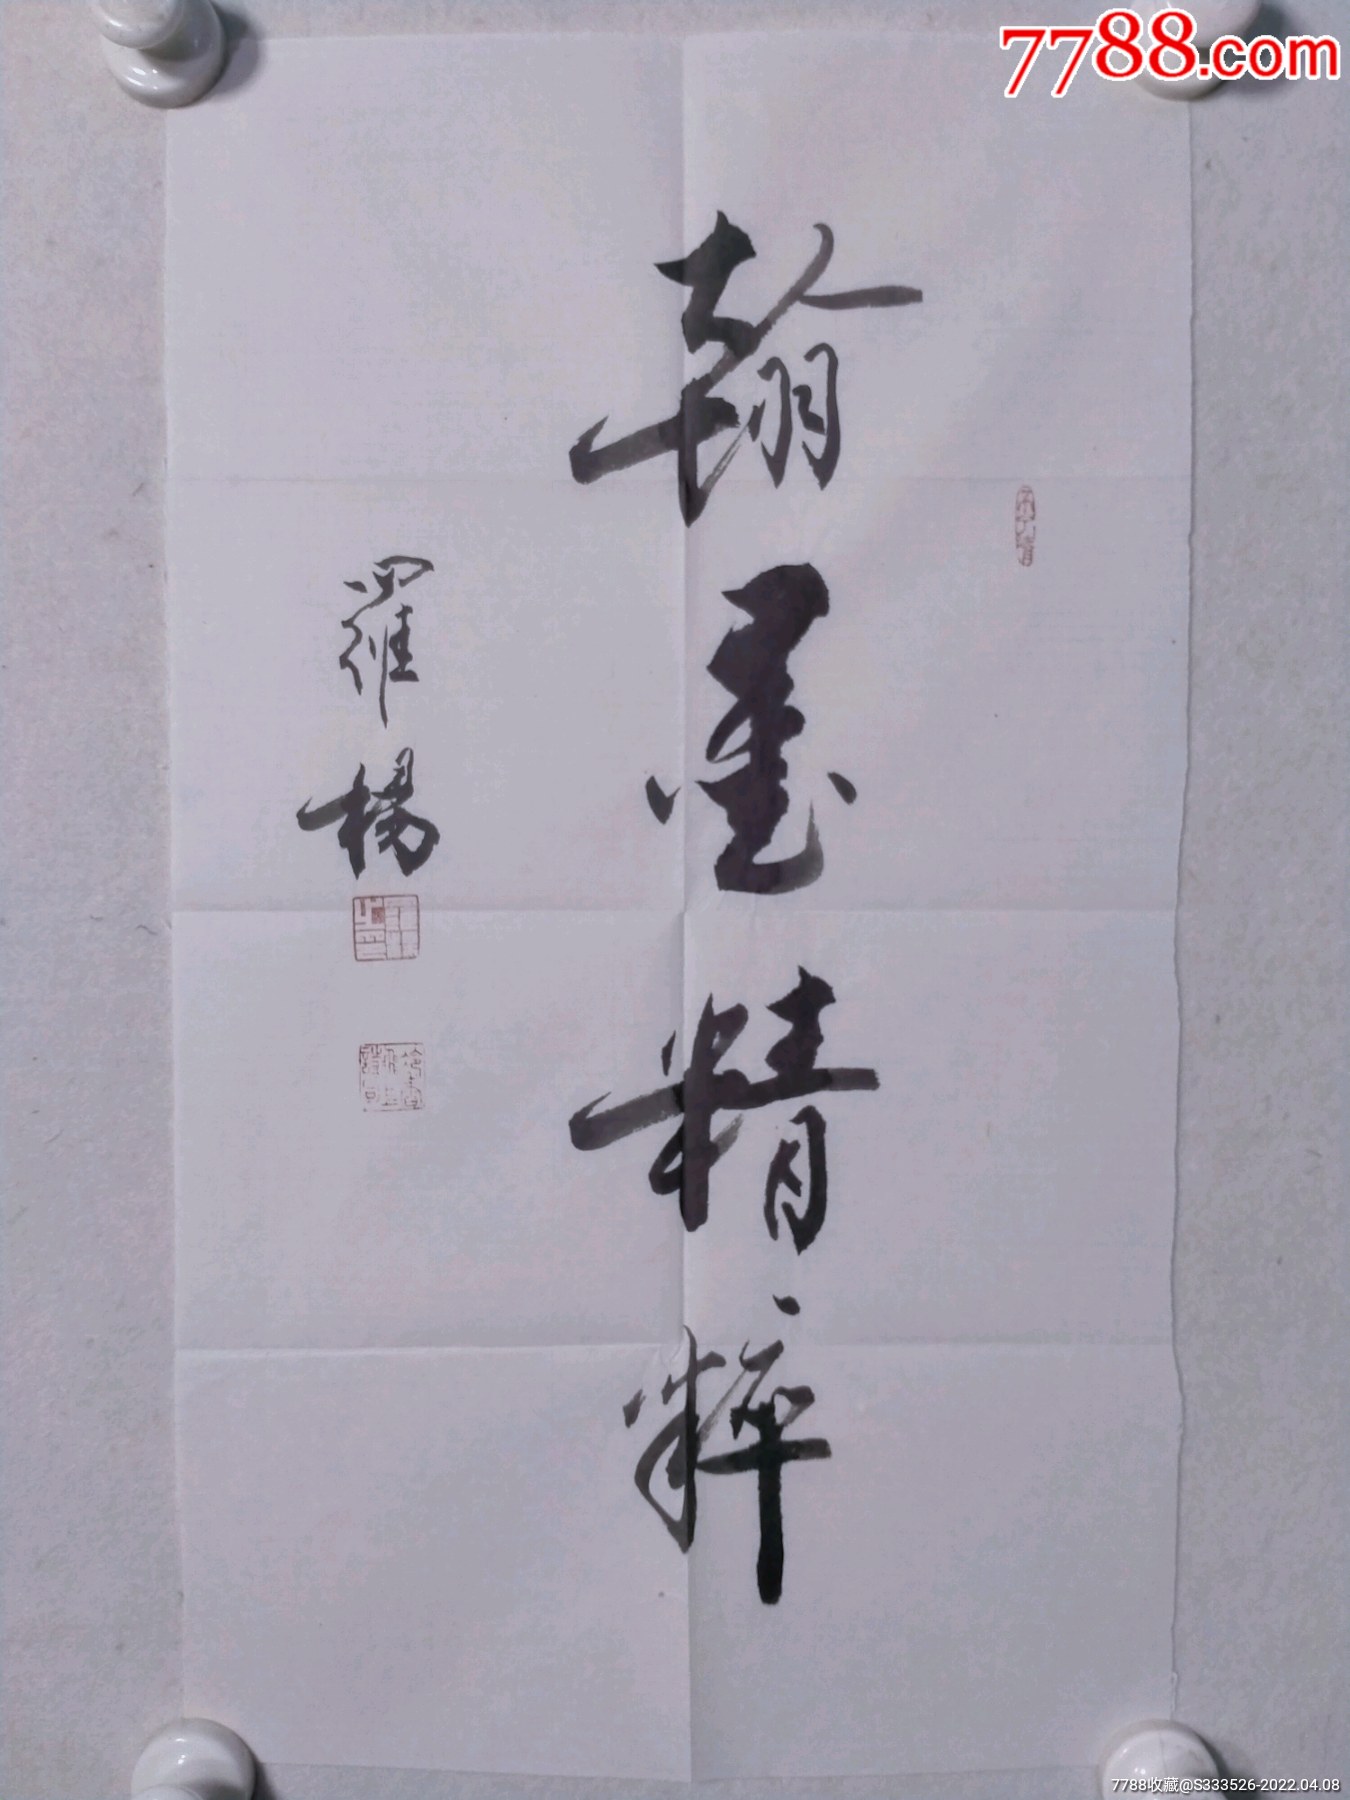 7788.com
翰墨精粹
羅楊
7788收藏@S333526-2022.04.08